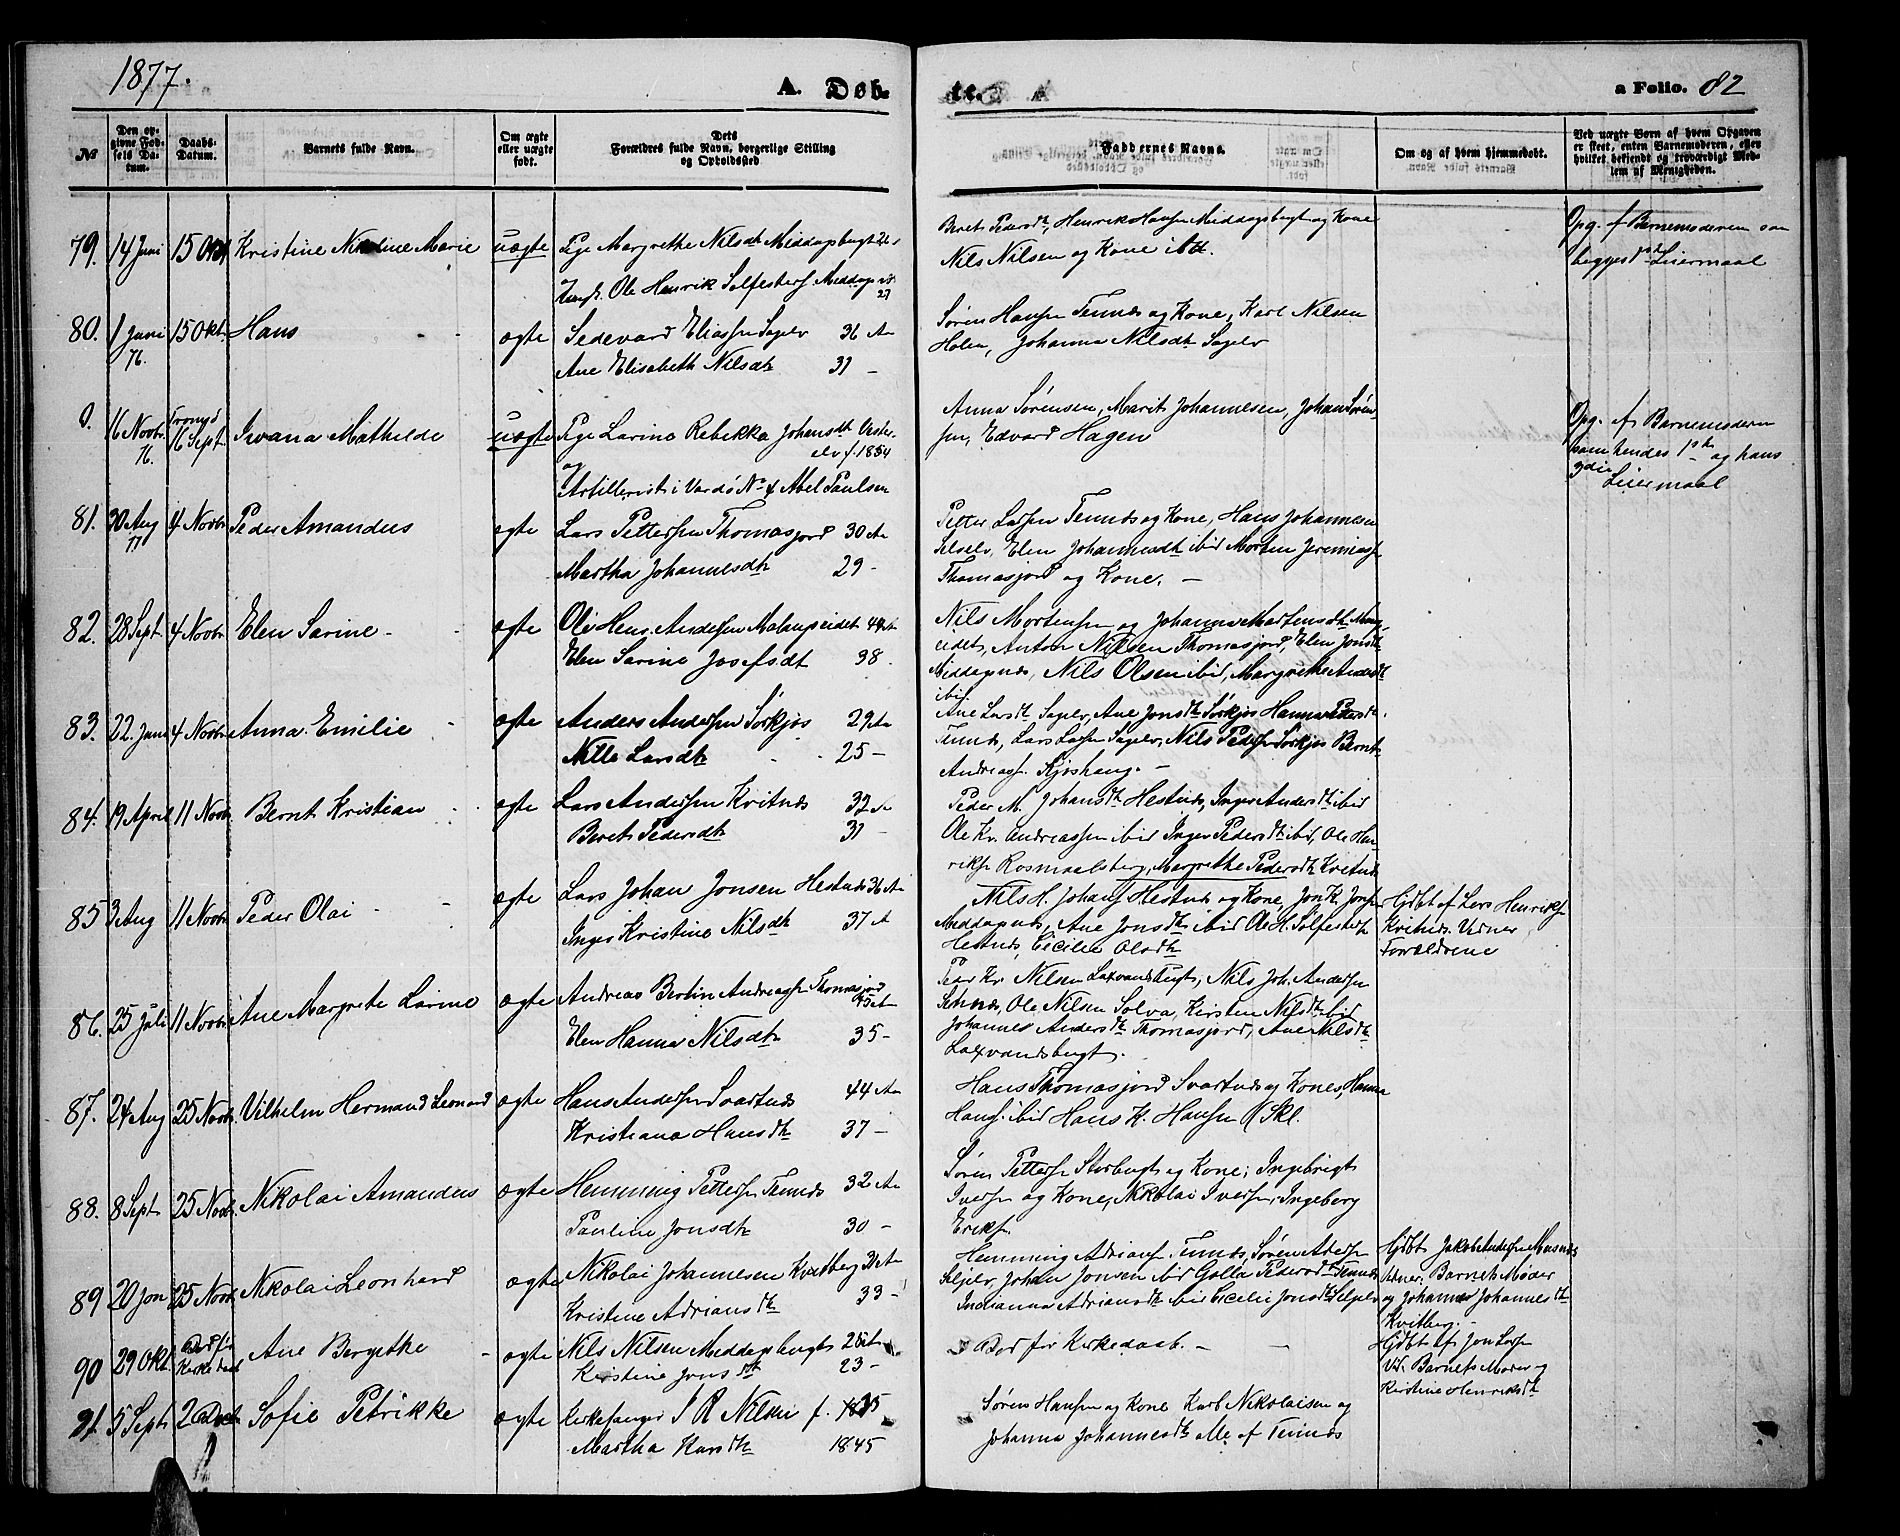 1877.
A. Døb-
te.
a Folio. 82
№
Den op-
givne Fød-
sels Da-
tum.
Daabs-
Datum.
Barnets fulde Navn.
Om ægte
eller uægte
født.
Dets
Forældres fulde Navn, borgerlige Stilling
og Opholdssted
Faddernes Navne.
Om og af hvem hjemmedøbt.
Ved uægte Børn af hvem Opgaven
er skeet, enten Barnemoderen, eller
hvilket bekjendt og troværdigt Med-
lem af Menigheden.
79. 14 Juni 15 Okt Kristine Nikoline Marie uægte Pige Margrethe Nilsdt Middagsbugt
Ungk. Ole Henrik Solfesters Middagsn 27
Beret Pedersdt, Henrik Hansn Middagsbugt og Kone
Nils Nilsen og Kone ibd.
Opg. af Barnemoderen som
begges Leiermaal
80. 1 Juni 76. 15 Okt. Hans ægte Sedevard Eliassn Sagelv 36 Aa
Ane Elisabeth Nilsdt 31 –
Søren Hansn Tennæs og Kone, Karl Nilsen
Holen, Johanna Nilsdt Sagelv
0. 16 Novbr. 76. Tromsø 16 Sept. Ivana Mathilde uægte Pige Larine Rebekka Johansdt Vester-
elv f. 1854
og
Artillerist i Vardø No 4 Abel Paulsen
Anna Sørensen, Marit Johannesen, Johan Søren-
sen, Edvard Hagen
Opg. af Barnemoderen
som hendes 1ste og hans
Leiermaal
81. 30 Aug 77 4 Novbr Peder Amandus ægte Lars Pettersen Thomasjord 30 Aa
Martha Johannesdt 29 –
Petter Larsen Tennæs og Kone, Hans Johannesen
Selselv, Elen Johannesdt ibid Morten Jeremiass.
Thomasjord og Kone. –
82. 28 Sept. 4 Novbr Elen Sarine – ægte Ole Hens. Andersen Malangseidet 44
Elen Sarine Josefsdt 38.
Nils Mortensen og Johanna Martensdt Mang
eidet, Anton Nilsen Thomasjord, Elen Jonsdt
Middagsnæs, Nils Olsen ibid, Margrethe Andersdt
ibid
83. 22. Juni 4 Novbr Anna Emilie ægte Anders Andersen Sørkjos 29 Aa
Nille Larsdt 25 –
Ane Larsdt Sagelv, Ane Jonsdt Sørkjos Hanna Pedersdt
Tennæs, Lars Larsen Sagelv, Nils Pedersen Sørkjos Bernt
Andreass. Kjoshaug. –
84. 19 April 11 Novbr. Bernt Kristian ægte Lars Andersen Kvitnæs 32 Aa
Beret Pedersdt 31 –
Peder M. Johansdt Hestnæs, Inger Andersdt ibid
Ole Kr. Andreassen ibid Inger Pedersdt ibid, Ole Hen-
riks. Rosmaalsberg, Margrethe Pedersdt Kvitnæs
85 3 Aug 11 Novbr Peder Olai ægte Lars Johan Jonsen Hestnæs 36 Aa
Inger Kristine Nilsdt 37 A
Nils H. Johans. Hestnæs og Kone, Jon K. Jonsn
Middagsnæs, Ane Jonsdt ibid Ole H. Solfestersn
Hestnæs, Cicilie Olsdt
Hjdbt af Lars Henriks.
Kvitnæs. Vidner
Forældrene
86. 25 Juli 11 Novbr Ane Margrete Larine ægte Andreas Bertin Andreass. Thomasjord
45 A
Elen Hanna Nilsdt 35 –
Peder Kr. Nilsen Laxvandsbugt, Nils Joh. Andersen
Selnæs, Ole Nilsen Solva, Kirsten Nilsdt ibid
Johannes Andersdt Thomasjord, Ane Nilsdt
Laxvandsbugt.
87. 24 Aug 25 Novbr. Vilhelm Hermand Leonard ægte Hans Andersen Svartnæs 44 Aa
Kristiana Hansdt 37 –
Hans Thomasjord Svartnæs og Kone, Hanna
Hans. ibid Hans K. Hansen K Skl.
88. 8 Sept 25 Novbr. Nikolai Amandus ægte Hemming Pettersen Tennæs 32 Aa
Pauline Jonsdt 30 –
Søren Pettersen Storbugt og Kone, Ingebrigt
Iversen og Kone, Nikolai Iversen, Ingeborg
Eriks.
89 20 Jan 25 Novbr. Nikolai Leonhard ægte Nikolai Johannesen Kvitberg 31 Aa
Kristine Adriansdt 33 –
Hemming Adrians. Tennæs, Søren Adersn
Selselv, Johan Jonsen ibid Golla Pedersdt Tennæs
Indianna Adriansdt ibid Cecilie Jonsdt Selselv
Hjdbt Jakob Andersen Mesnæs
Vidner: Barnets Moder
og Johanna Johannesdt
Kvitberg. –
90 29 Okt. Død før Kirkedaab Ane Bergithe – ægte Nils Nilsen Middagsbugt 26 Aa
Kirstine Jonsdt 23 –
Død før Kirkedaab. –
Hjdbt af Jon Larsn
Vid. Barnets Moder og
Kirstine Henriksdt
91. 5 Sept 2 Decbr Sofie Petrikke ægte Kirkesanger I R Nilsen f. 1835
Martha Hansdt 1845
Søren Hansen og Kone Karl Nikolaisen og
Johanna Johannesdt Alle af Tennæs